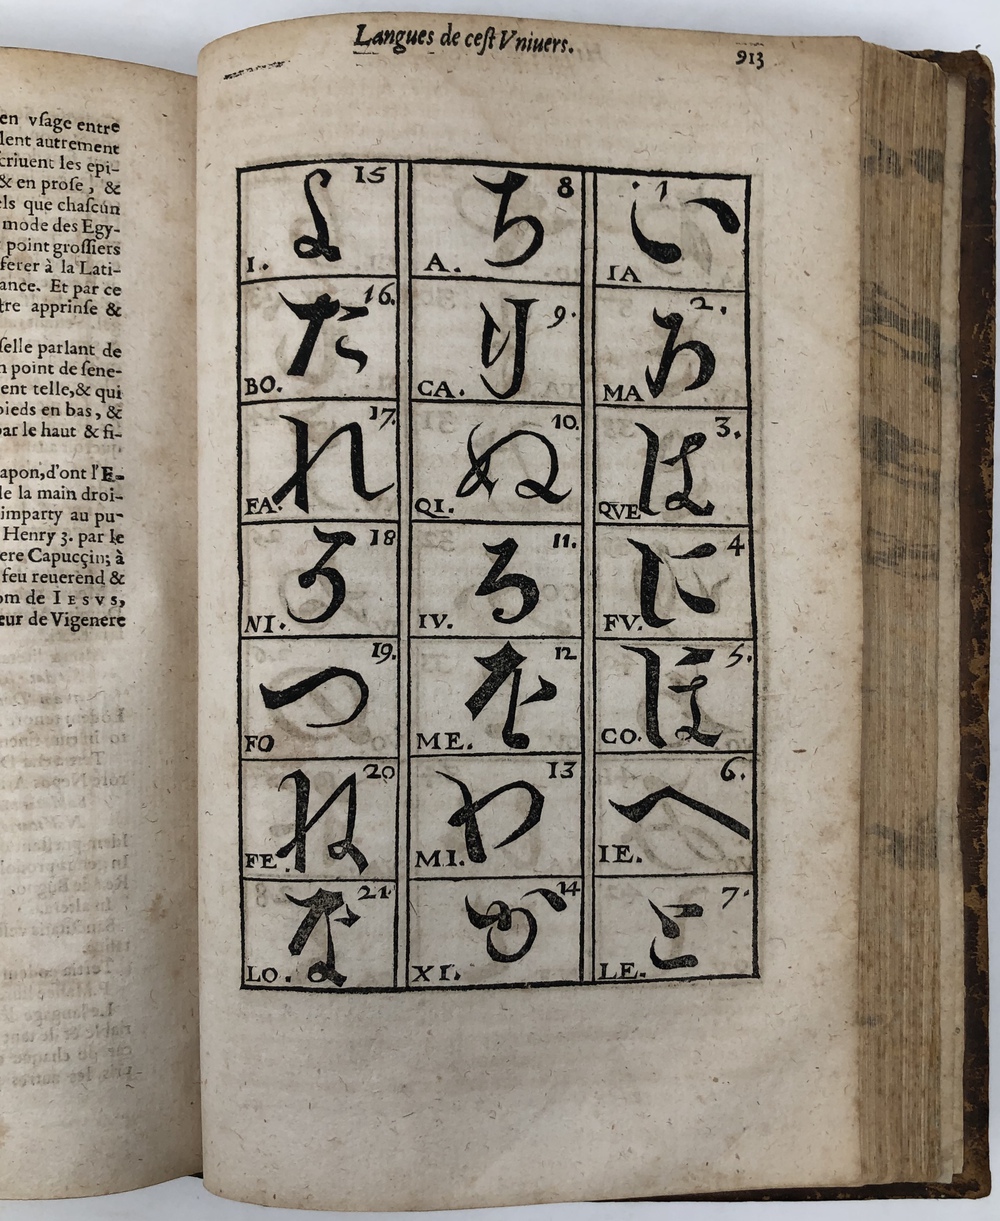 en vſage entre
lent autrement
criuent les epi-
& en proſe, &
els que chaſcun
mode des Egy-
point groſſiers
ferer à la Lati-
ance. Et par ce
tre apprinſe &
ſelle parlant de
n point de ſene-
ent telle, & qui
pieds en bas, &
par le haut & fi-
apon, d'ont l'E-
le la main droi-
imparty au pu-
Henry 3. par le
ere Capucçin; à
feu reuerend &
om de IESVS,
eur de Vigenere
Langues de ceſt Vniuers.
913
1 い IA
2. ろ MA
3. は QVE
4 に FV.
5. ほ CO.
6. へ IE.
7. と LE.
8 ち A.
9. り CA.
10. ぬ QI.
11. る IV.
12 を ME.
13 わ MI.
14 か XI.
15 よ I.
16. た BO.
17. れ FA.
18 そ NI.
19. つ FO
20 ね FE.
21 な LO.